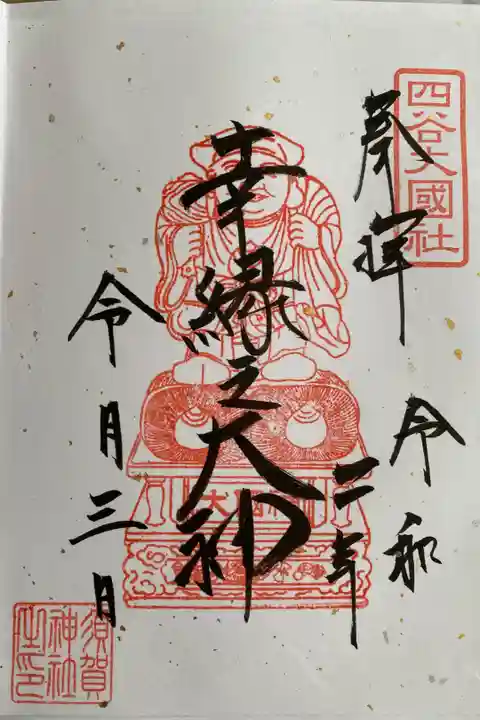 四谷大國社
奉拝
令和
二年
幸縁之大神
令月三日
須賀
神社
之印